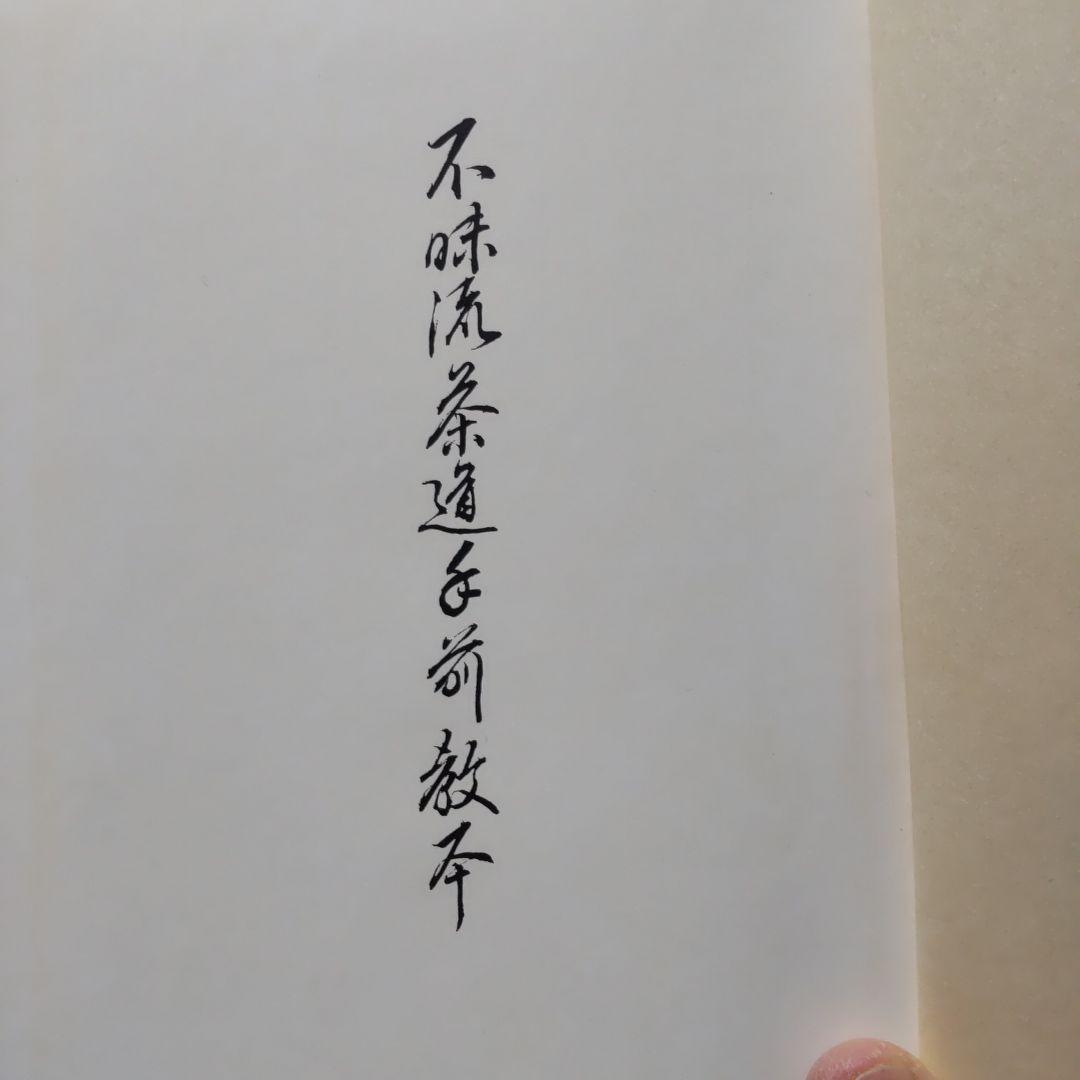 不昧流茶道手前教本